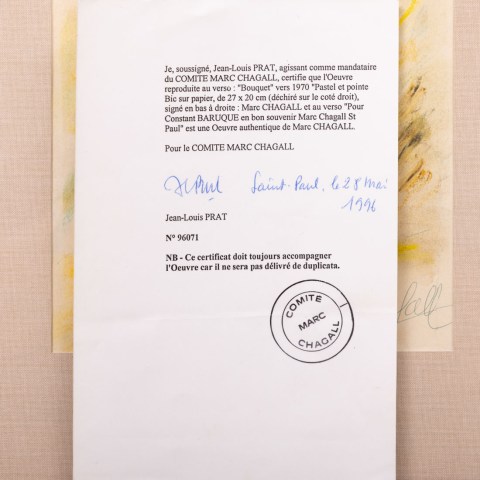 Je, soussigné, Jean-Louis PRAT, agissant comme mandataire
du COMITE MARC CHAGALL, certifie que l'Oeuvre
reproduite au verso : "Bouquet" vers 1970 "Pastel et pointe
Bic sur papier, de 27 x 20 cm (déchiré sur le coté droit),
signé en bas à droite : Marc CHAGALL et au verso "Pour
Constant BARUQUE en bon souvenir Marc Chagall St
Paul" est une Oeuvre authentique de Marc CHAGALL.
Pour le COMITE MARC CHAGALL
JLPrat Saint-Paul, le 28 Mai
1996
Jean-Louis PRAT
N° 96071
NB - Ce certificat doit toujours accompagner
l'Oeuvre car il ne sera pas délivré de duplicata.
COMITE
MARC
CHAGALL